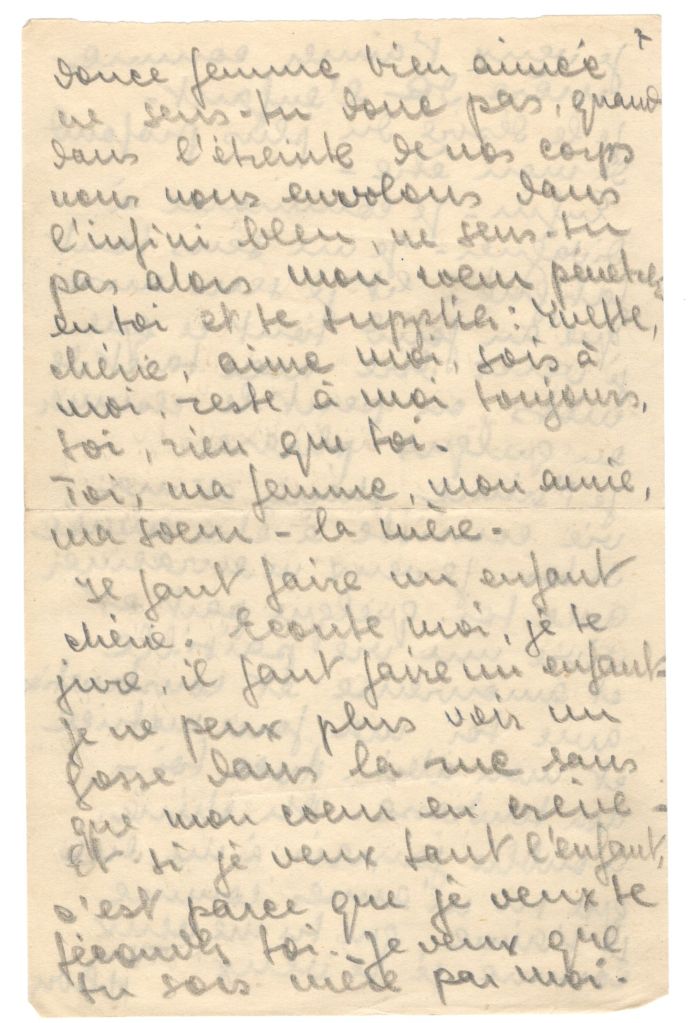 7
douce femme bien aimée
ne sens-tu donc pas, quand
dans l'étreinte de nos corps
nous nous envolons dans
l'infini bleu, ne sens-tu
pas alors mon coeur pénétrer
en toi et te supplier : Yvette,
chérie, aime moi, sois à
moi, reste à moi toujours,
toi, rien que toi.
Toi, ma femme, mon amie,
ma soeur - la mère -
Il faut faire un enfant
chérie. Ecoute moi, je te
jure, il faut faire un enfant.
je ne peux plus voir un
gosse dans la rue sans
que mon coeur en crève -
Et si je veux tant l'enfant,
c'est parce que je veux te
féconder toi. Je veux que
tu sois mère par moi.